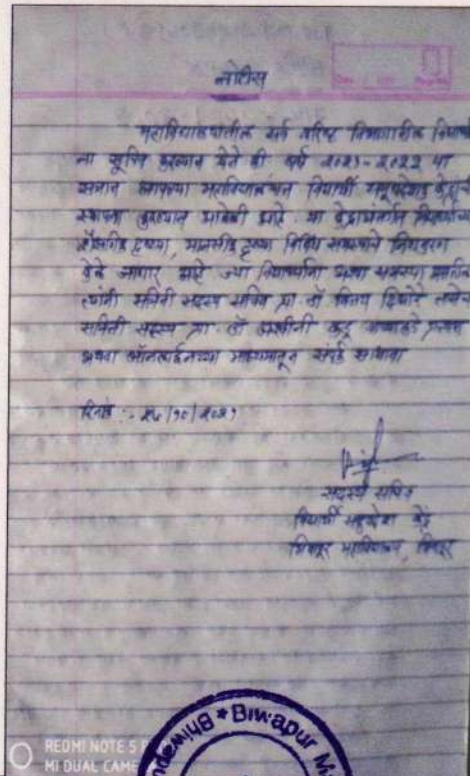 नोटीस
महाविद्यालयातील सर्व वरिष्ठ विभागातील
ना सूचित करण्यात येते की वर्ष 2021-2022 या
सत्रात आपल्या महाविद्यालयात विद्यार्थी समुपदेशन केंद्राची
स्थापना करण्यात आलेली आहे. या केंद्राअंतर्गत
शैक्षणिक दृष्ट्या, मानसीक दृष्ट्या विविध समस्यांचे निराकरण
केले जाणार आहे ज्या विद्यार्थ्यांना अश्या समस्या असतील
त्यांनी समिती सदस्य सचिव प्रा. डॉ तसेच
समिती सदस्य प्रा. डॉ यांच्याकडे प्रत्यक्ष
अथवा ऑनलाईनच्या माध्यमातून संपर्क साधावा
दिनांक :- /10/2021
सदस्य सचिव
विद्यार्थी समुपदेशन केंद्र
भिवापूर महाविद्यालय, भिवापूर
REDMI NOTE 5
MI DUAL CAME
Biwapur